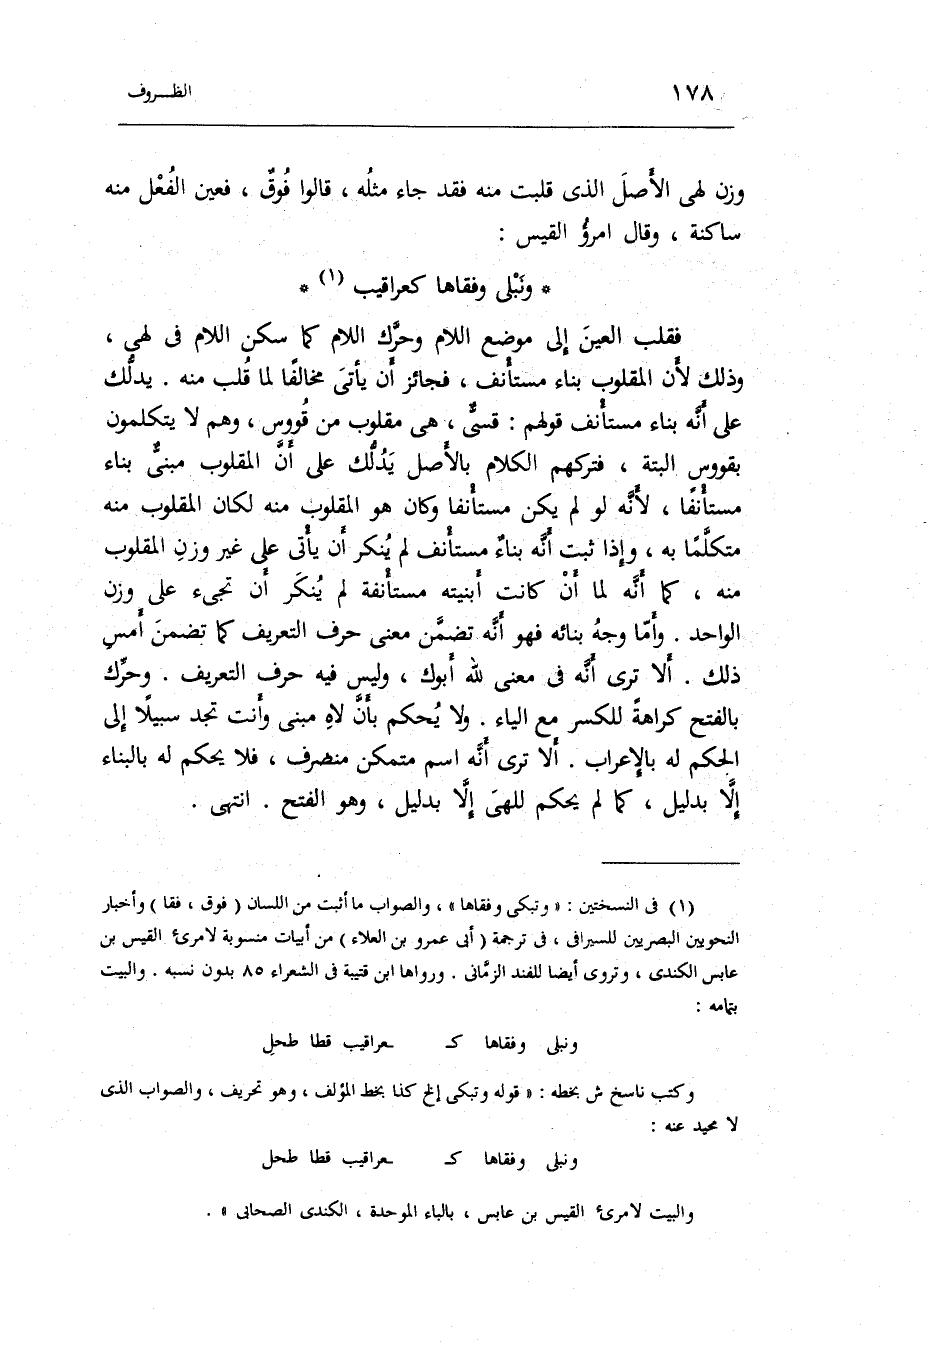 ١٧٨ الظـروف
وزن لهى الأَصلَ الذى قلبت منه فقد جاء مثلُه ، قالوا فُوقٌ ، فعين الفُعْل منه
ساكنة ، وقال امرؤُ القيس :
* ونَبْلى وفقاها كعراقيب (١) *
فقلب العينَ إلى موضع اللام وحرَّك اللام كما سكن اللام فى لهى ،
وذلك لأَن المقلوب بناء مستأْنف ، فجائز أَن يأتىَ مخالفًا لما قُلب منه . يدلُّك
على أَنَّه بناء مستأْنف قولهم : قسىٌّ ، هى مقلوب من قُووس ، وهم لا يتكلمون
بقووس البتة ، فتركهم الكلام بالأَصل يَدُلُّك على أَنَّ المقلوب مبنىٌّ بناء
مستأْنفًا ، لأَنَّه لو لم يكن مستأنفا وكان هو المقلوب منه لكان المقلوب منه
متكلَّمًا به ، وإِذا ثبت أَنَّه بناءٌ مستأْنف لم يُنكر أَن يأْتى على غير وزنِ المقلوب
منه ، كما أَنَّه لما أَنْ كانت أَبنيته مستأْنفة لم يُنكَر أَن تجىء على وزن
الواحد . وأَمّا وجهُ بنائه فهو أَنَّه تضمَّن معنى حرف التعريف كما تضمنَ أَمسِ
ذلك . أَلا ترى أَنَّه فى معنى لله أَبوك ، وليس فيه حرف التعريف . وحرِّك
بالفتح كراهةً للكسر مع الياء . ولا يُحكم بأَنَّ لاهِ مبنى وأَنت تجد سبيلًا إِلى
الحكم له بالإِعراب . أَلا ترى أَنَّه اسم متمكن منصرف ، فلا يحكم له بالبناء
إِلَّا بدليل ، كما لم يحكم للهىَ إِلَّا بدليل ، وهو الفتح . انتهى .
(١) فى النسختين : « وتبكى وفقاها » ، والصواب ما أثبت من اللسان ( فوق ، فقا ) وأخبار
النحويين البصريين للسيرافى ، فى ترجمة ( أبى عمرو بن العلاء ) من أبيات منسوبة لامرئ القيس بن
عابس الكندى ، وتروى أيضا للفند الزمَّانى . ورواها ابن قتيبة فى الشعراء ٨٥ بدون نسبه . والبيت
بتمامه :
ونبلى وفقاها كـ ـعراقيب قطا طحلِ
وكتب ناسخ ش بخطه : « قوله وتبكى إلخ كذا بخط المؤلف ، وهو تحريف ، والصواب الذى
لا محيد عنه :
ونبلى وفقاها كـ ـعراقيب قطا طحل
والبيت لامرئ القيس بن عابس ، بالباء الموحدة ، الكندى الصحابى » .